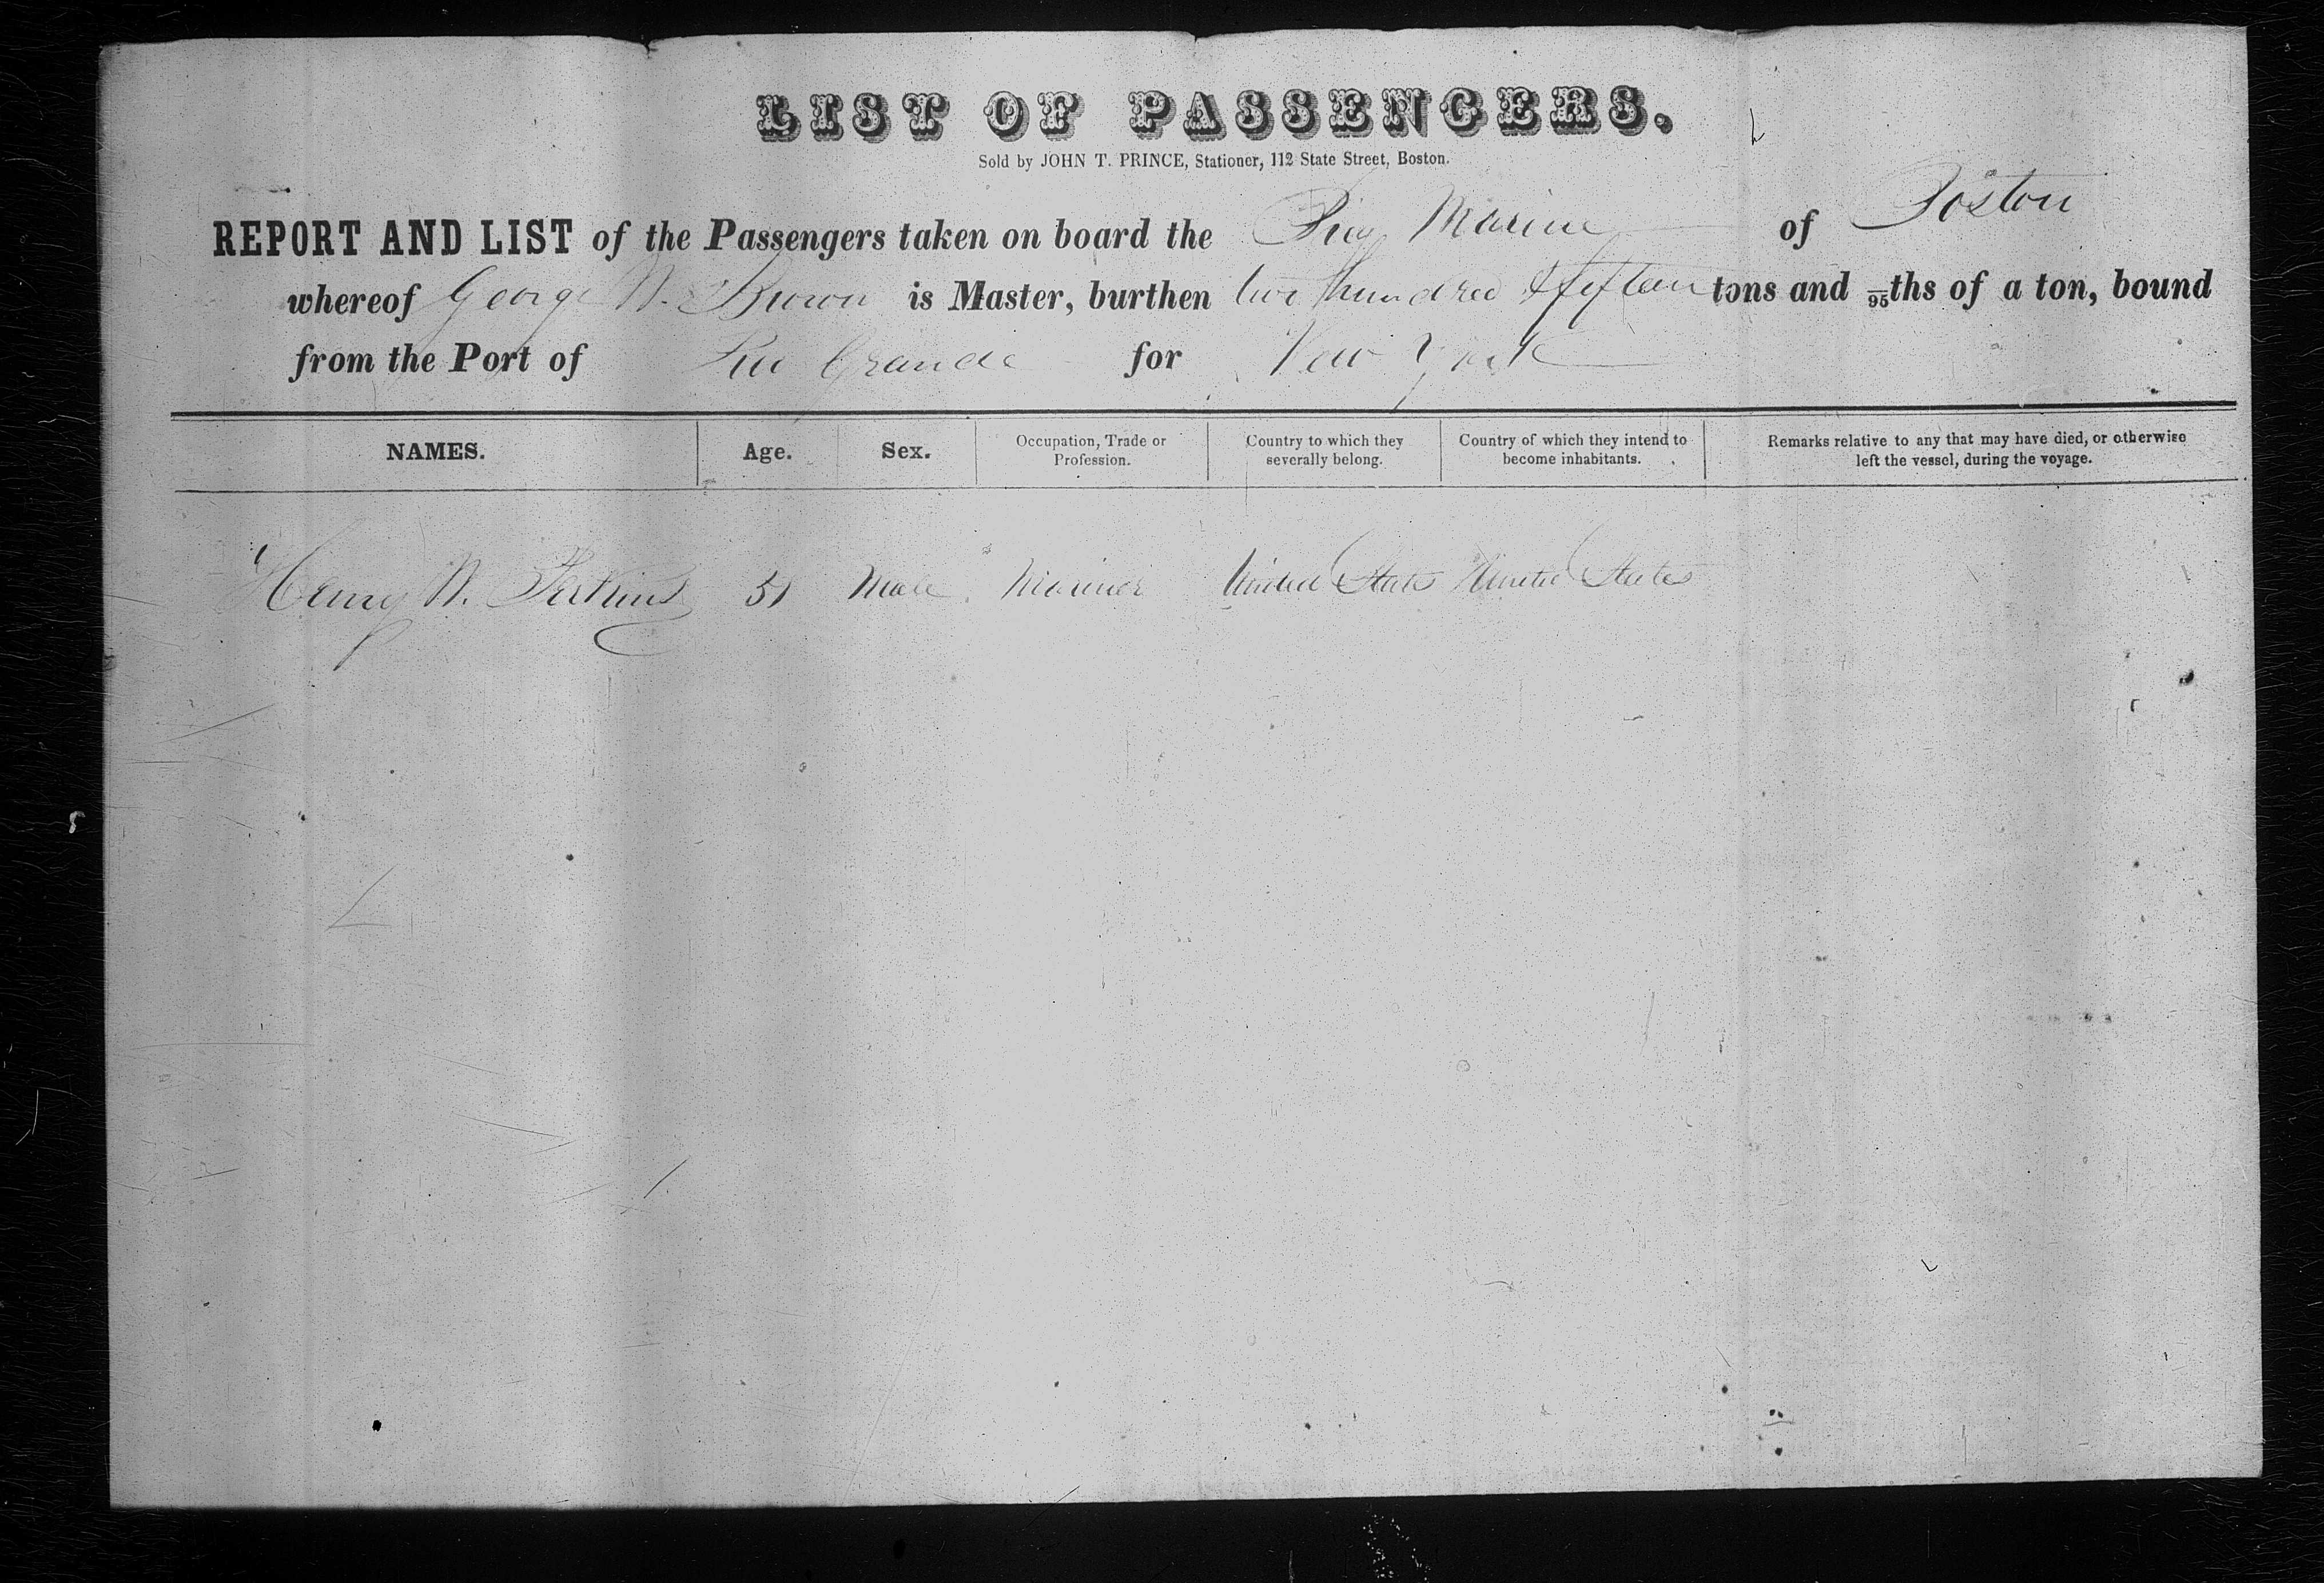 LIST OF PASSENGERS.
Sold by JOHN T. PRINCE, Stationer, 112 State Street, Boston.
REPORT AND LIST of the Passengers taken on board the Brig Marine of Boston
whereof George W. Brown is Master, burthen two hundred & fifteen tons and /95ths of a ton, bound
from the Port of Rio Grande for New York
NAMES. Age. Sex. Occupation, Trade or Profession. Country to which they severally belong. Country of which they intend to become inhabitants. Remarks relative to any that may have died, or otherwise left the vessel, during the voyage.
Henry W. Perkins 51 Male Mariner United States United States